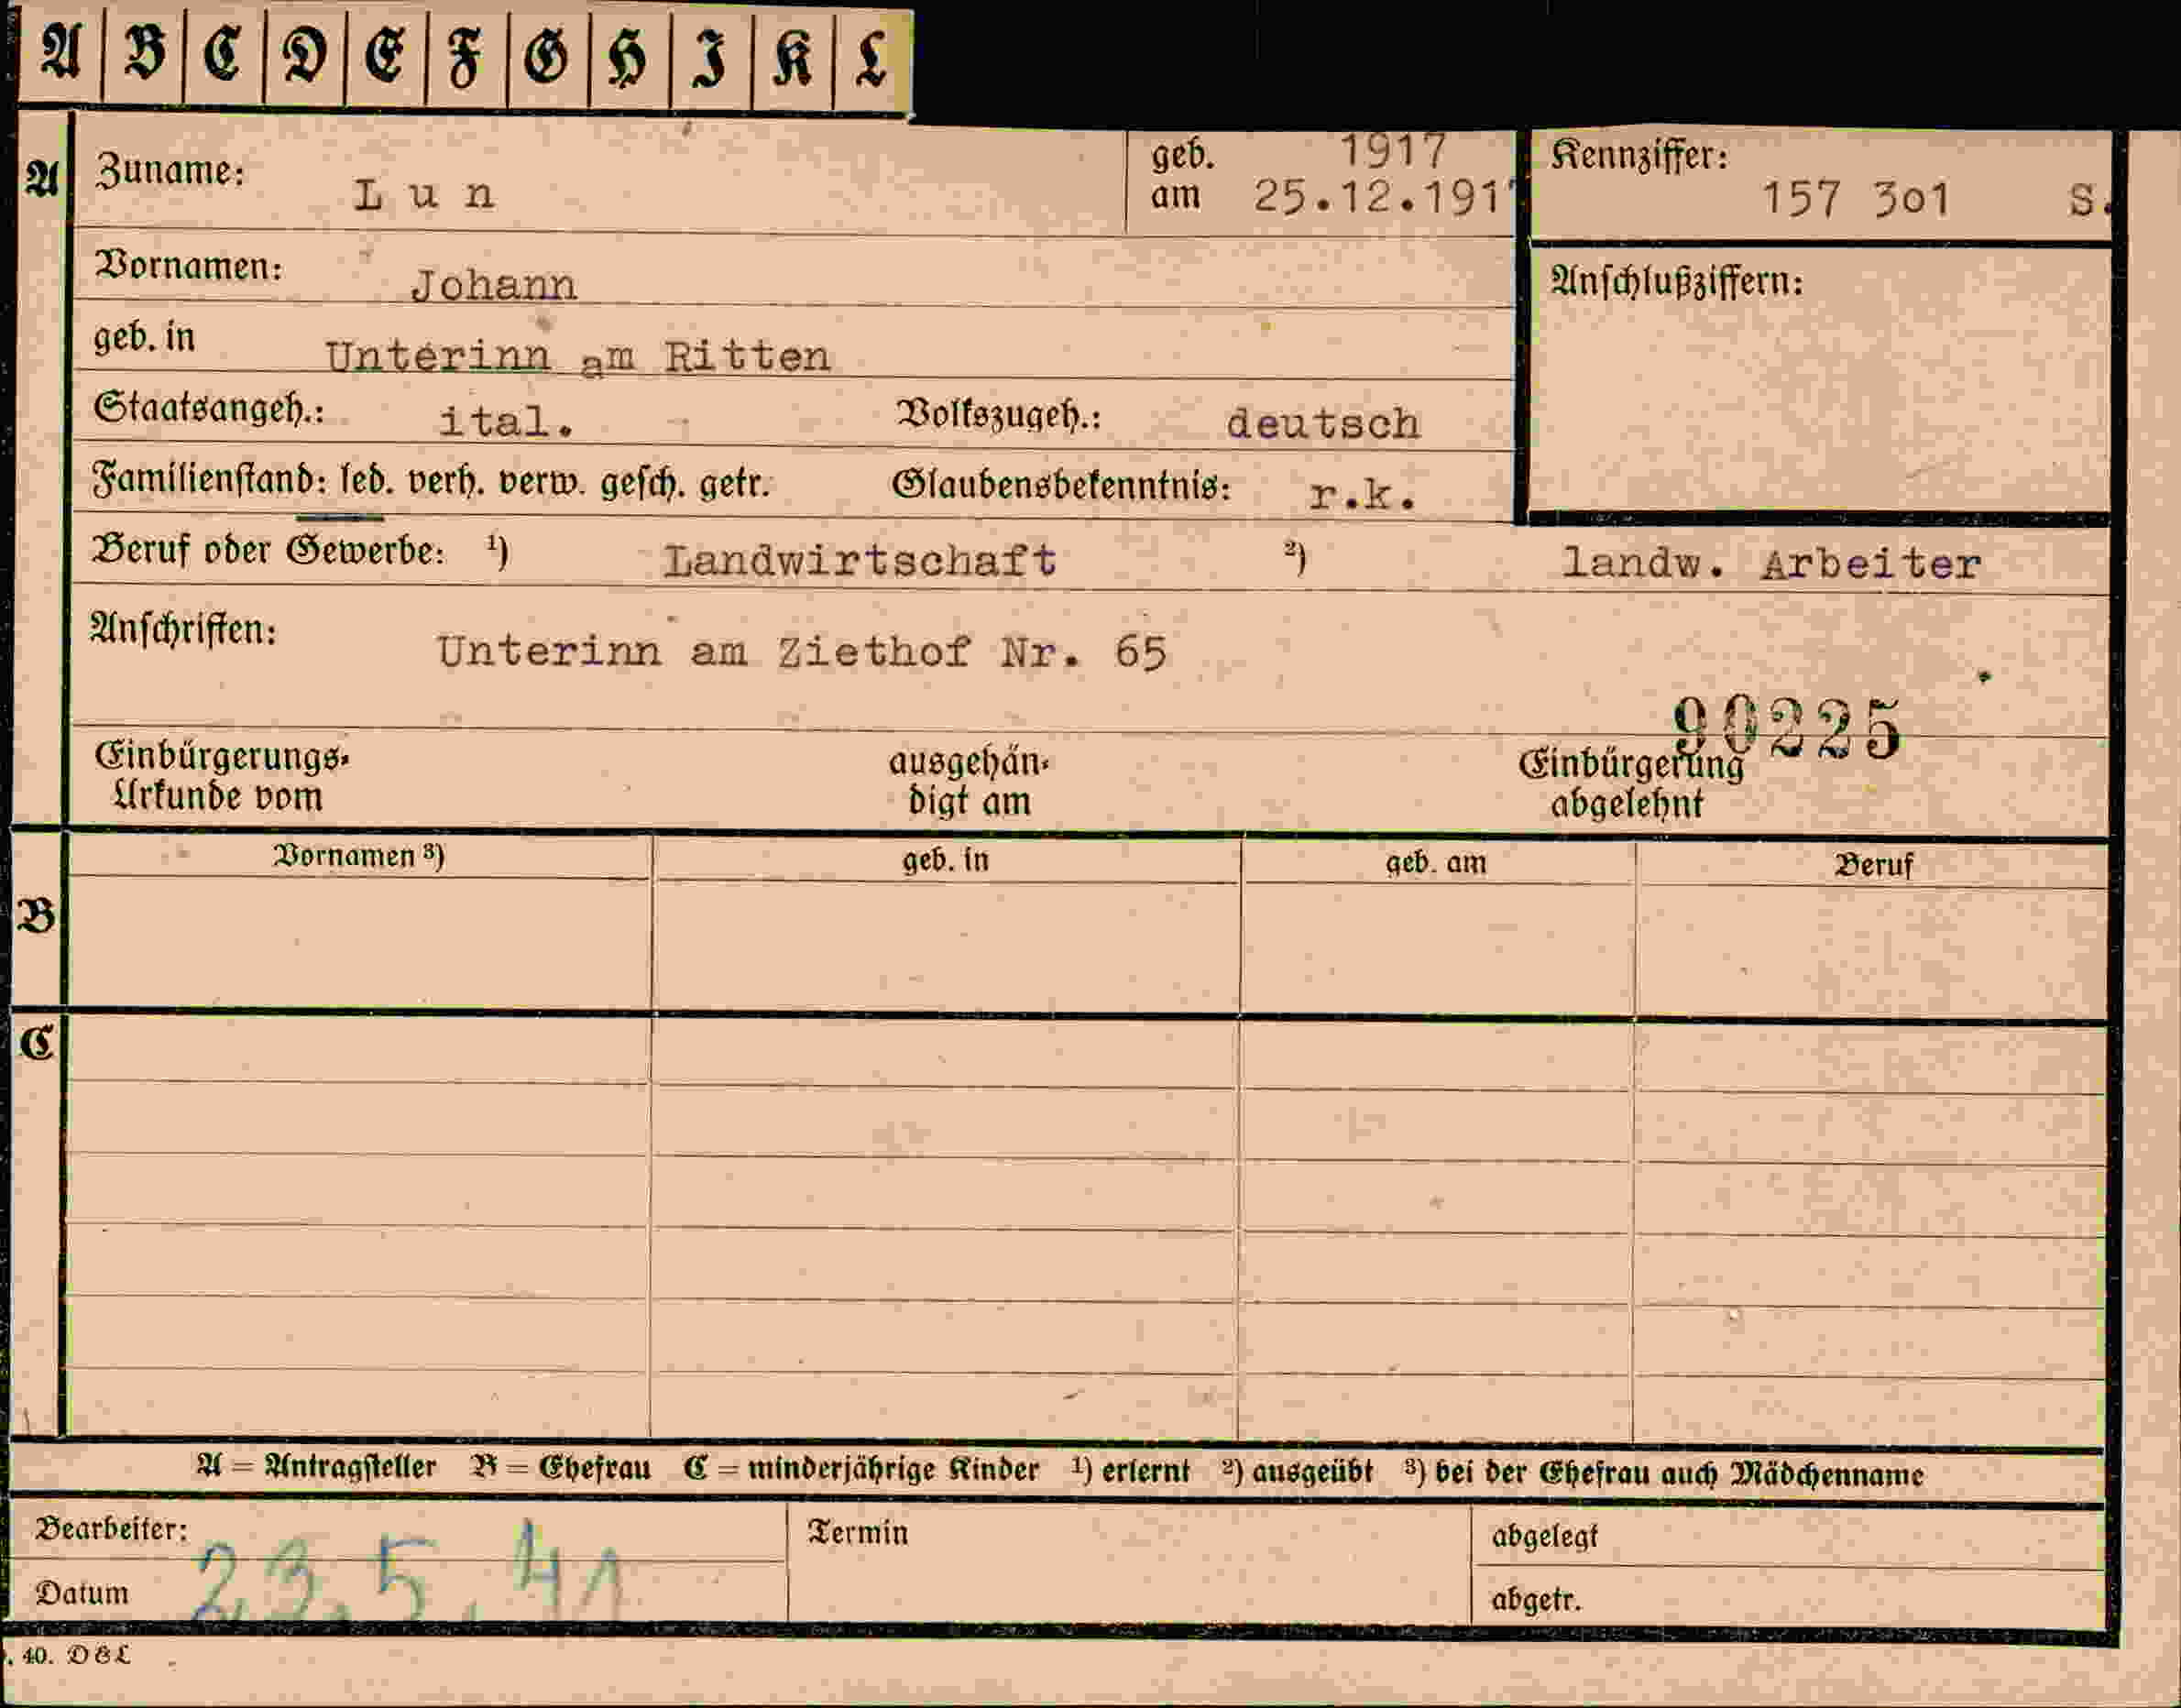 A B C D E F G H I K L
A Zuname: Lun geb. am 1917 25.12.191 Kennziffer: 157 301 S.
Vornamen: Johann Anschlußziffern:
geb. in Unterinn am Ritten
Staatsangeh.: ital. Volkszugeh.: deutsch
Familienstand: led. verh. verw. gesch. getr. Glaubensbekenntnis: r.k.
Beruf oder Gewerbe: ¹) Landwirtschaft ²) landw. Arbeiter
Anschriften: Unterinn am Ziethof Nr. 65
90225
Einbürgerungs- ausgehän- Einbürgerung
Urkunde vom digt am abgelehnt
Vornamen ³) geb. in geb. am Beruf
B
C
A = Antragsteller B = Ehefrau C = minderjährige Kinder ¹) erlernt ²) ausgeübt ³) bei der Ehefrau auch Mädchenname
Bearbeiter: Termin abgelegt
Datum 23.5.41 abgetr.
. 40. D&L